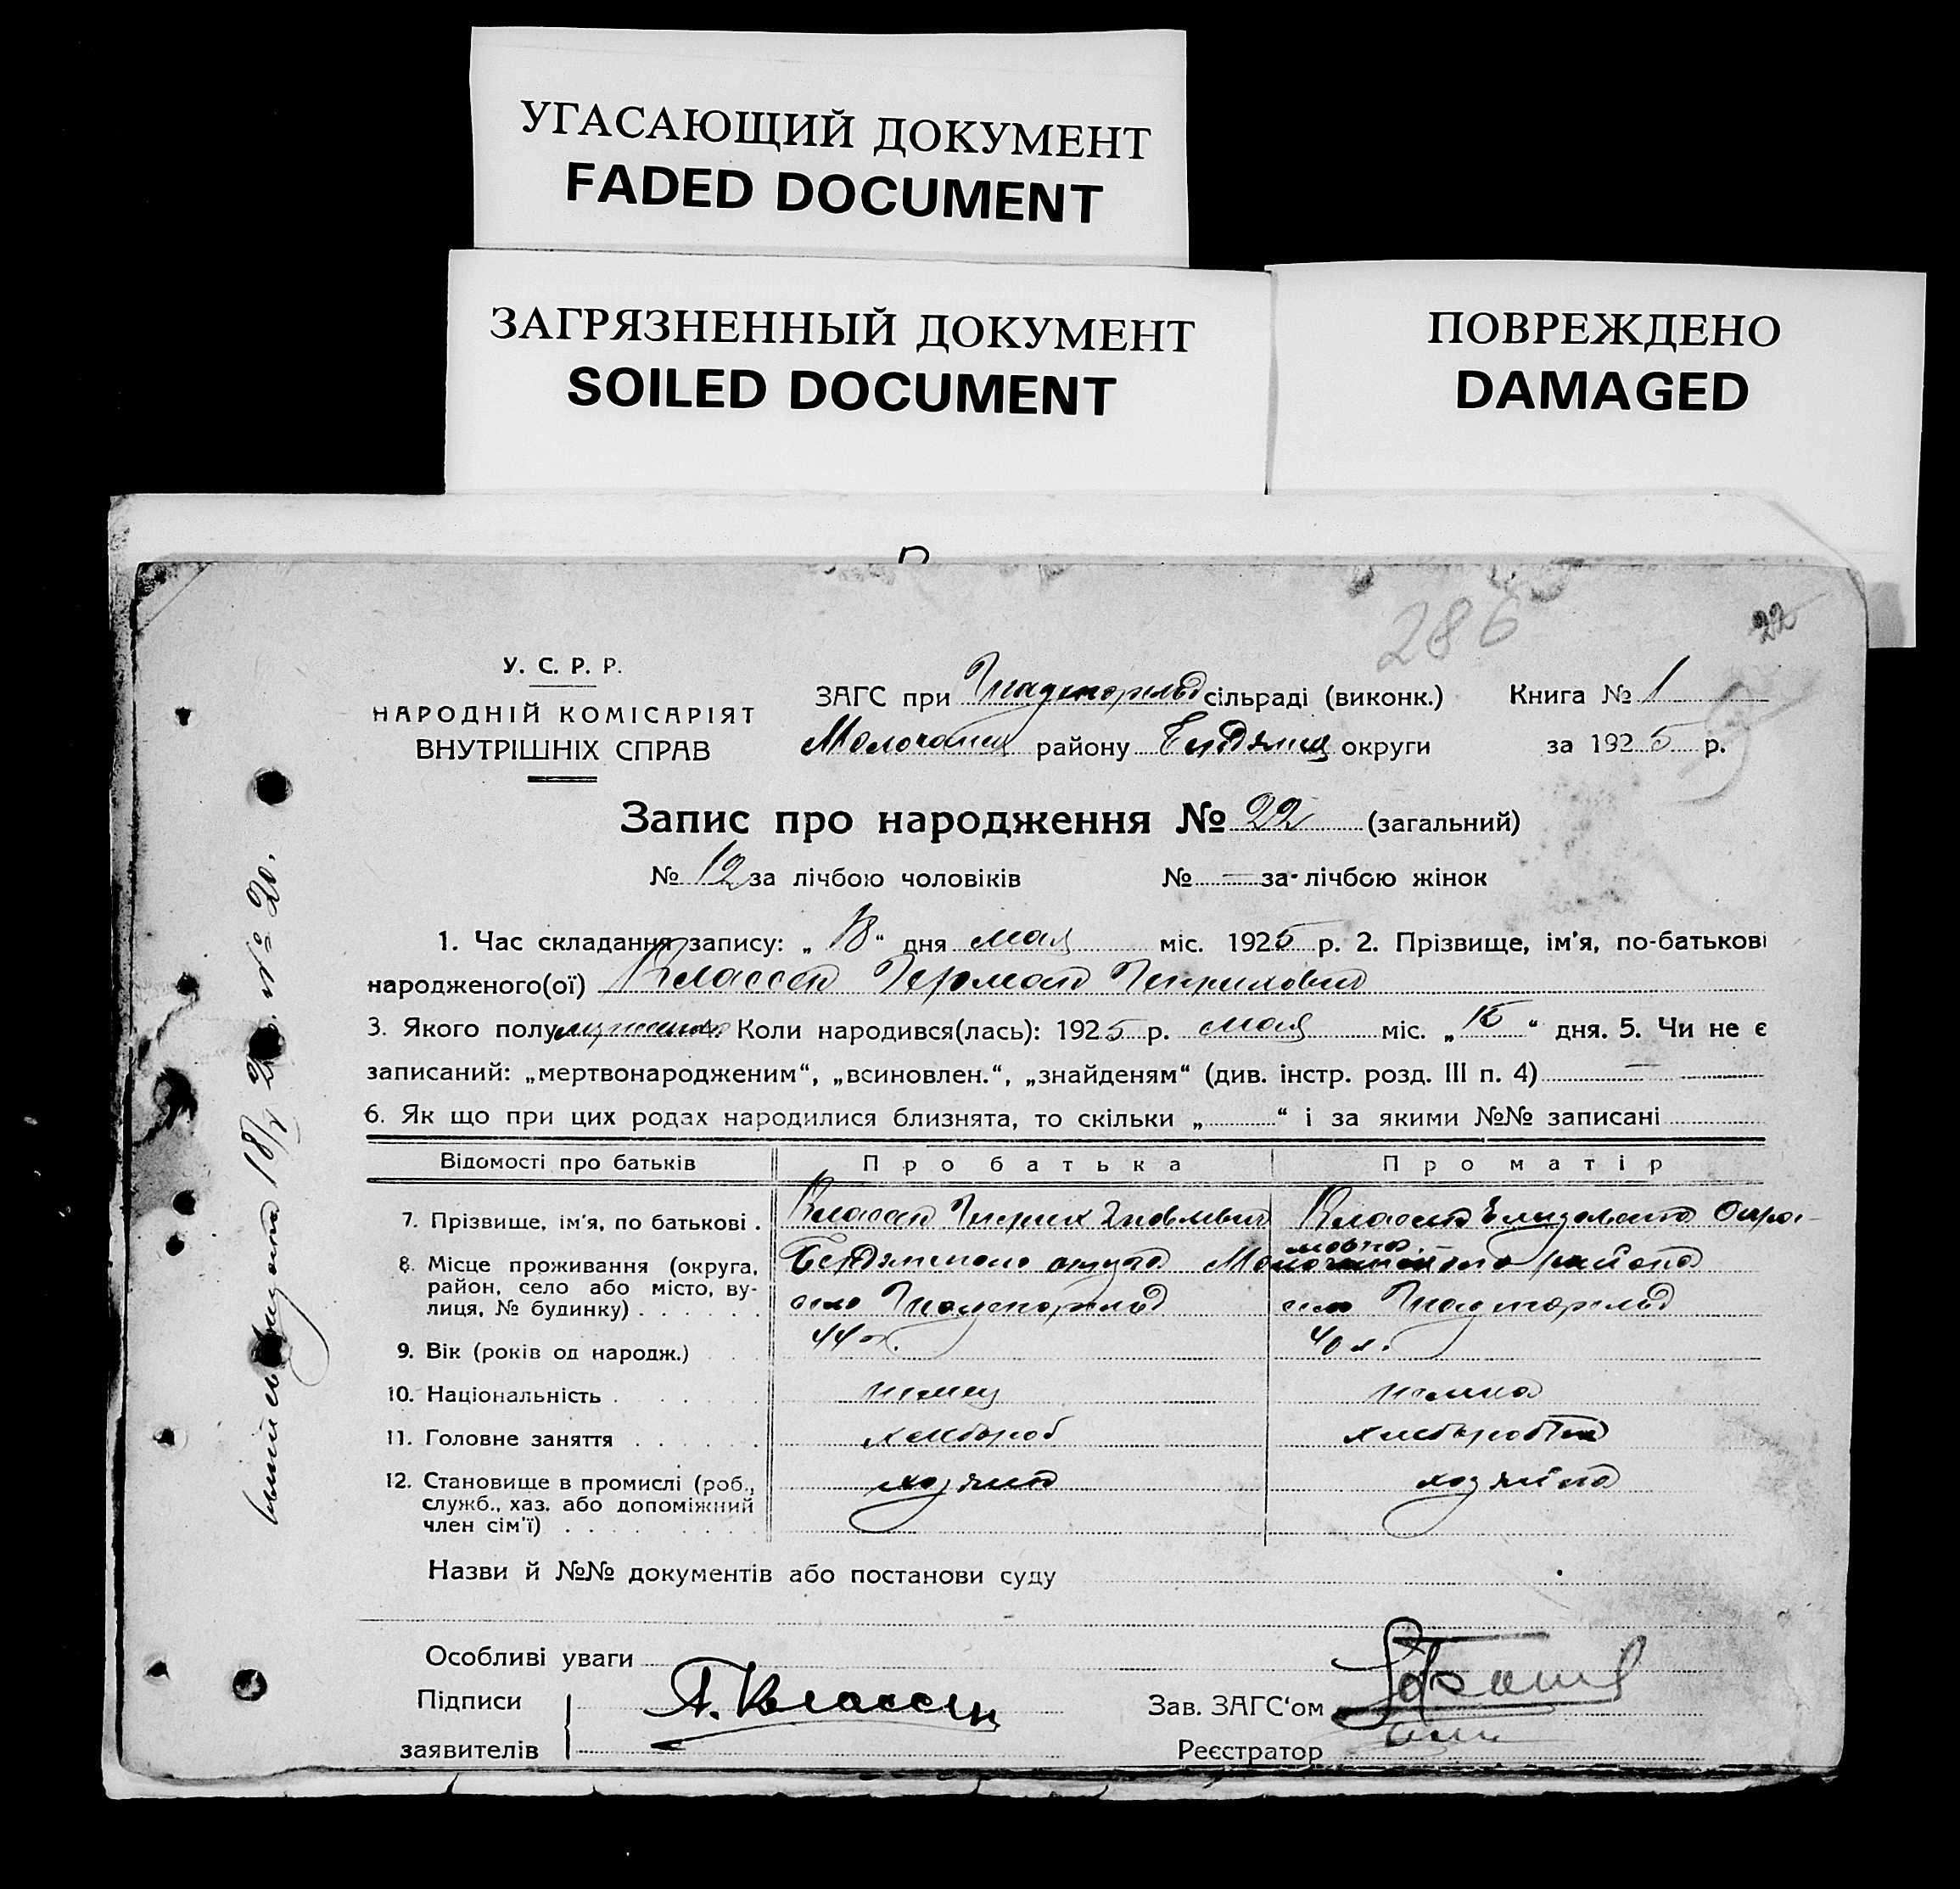 УГАСАЮЩИЙ ДОКУМЕНТ
FADED DOCUMENT
ЗАГРЯЗНЕННЫЙ ДОКУМЕНТ
SOILED DOCUMENT
ПОВРЕЖДЕНО
DAMAGED
286
22
У. С. Р. Р.
НАРОДНІЙ КОМІСАРІЯТ
ВНУТРІШНІХ СПРАВ
ЗАГС при сільраді (виконк.) Книга № 1
району округи за 1925 р.
Запис про народження № 22 (загальний)
№ 12 за лічбою чоловіків № — за лічбою жінок
1. Час складання запису: „18“ дня мая міс. 1925 р. 2. Прізвище, ім'я, по-батькові
народженого(ої) Классен Герман Генрихович
3. Якого полу 4. Коли народився(лась): 1925 р. мая міс. „15“ дня. 5. Чи не є
записаний: „мертвонародженим“, „всиновлен.“, „знайденям“ (див. інстр. розд. III п. 4) —
6. Як що при цих родах народилися близнята, то скільки „ “ і за якими №№ записані
Відомості про батьків Про батька Про матір
7. Прізвище, ім'я, по батькові . Классен Генрих Классен Елизавета
8. Місце проживання (округа, Бердянского округа района
район, село або місто, ву-
лиця, № будинку) . . . . . . село село
9. Вік (років од народж.) . . 44 л. 40 л.
10. Національність . . . . . . немец немка
11. Головне заняття . . . . . . хлебороб
12. Становище в промислі (роб., хозяин хозяйка
служб., хаз. або допоміжний
член сім'ї) . . . . . . . . .
Назви й №№ документів або постанови суду
Особливі уваги
Підписи Г. Классен Зав. ЗАГС‘ом
заявителів Реєстратор
18/V 25. № 20.